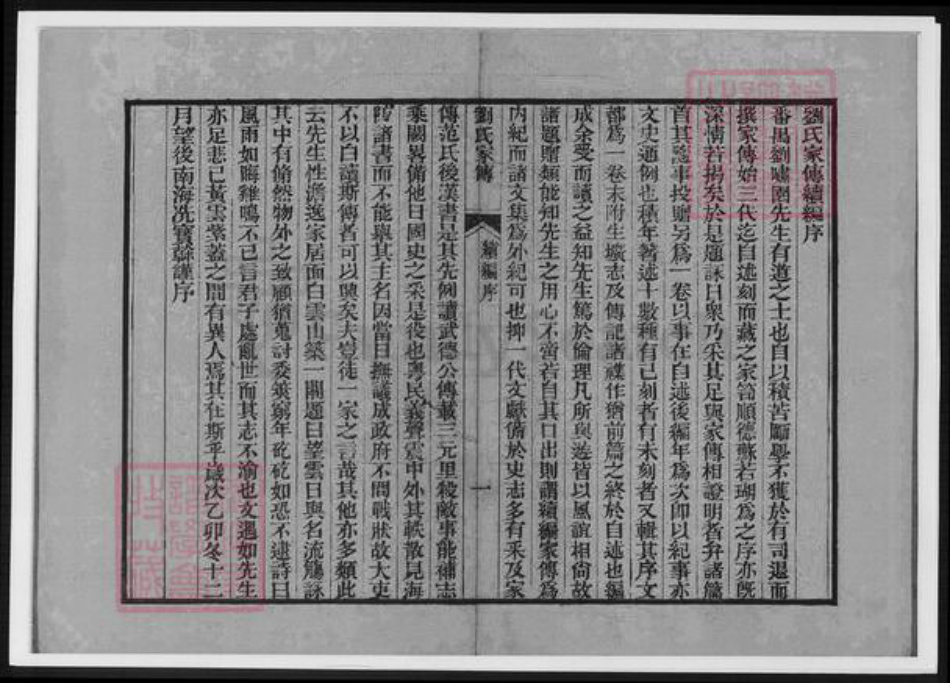 劉氏家傳續編序
番禺劉嘯園先生有道之士也自以積苦勵學不獲於有司退而
撰家傳始三代迄自述刻而藏之家笥順德蘇若瑚為之序亦旣
深情若揭矣於是題詠日衆乃采其足與家傳相證明者弁諸篇
首其懿事投贈另為一卷以事在自述後編年為次即以紀事亦
文史通例也積年著述十數種有已刻者有未刻者又輯其序文
都為一卷末附生壙志及傳記諸襍作猶前篇之終於自述也編
成余受而讀之益知先生篤於倫理凡所與遊皆以風誼相尚故
諸題贈類能知先生之用心不啻若自其口出則謂續編家傳為
內紀而諸文集為外紀可也抑一代文獻備於史志多有采及家
劉氏家傳 續編序 一
傳范氏後漢書是其先例讀武德公傳載三元里殺敵事能補志
乘闕畧備他日國史之采是役也粵民義聲震中外其軼散見海
防諸書而不能舉其主名因當日撫議成政府不問戰狀故大吏
不以白讀斯傳者可以興矣夫豈徒一家之言哉其他亦多類此
云先生性澹逸家居面白雲山築一關題曰望雲日與名流觴詠
其中有翛然物外之致顧猶蒐討委篋窮年矻矻如恐不逮詩曰
風雨如晦雞鳴不已言君子處亂世而其志不渝也文遇如先生
亦足悲已黃雲紫蓋之間有異人焉其在斯乎歲次乙卯冬十二
月望後南海冼寶榦謹序